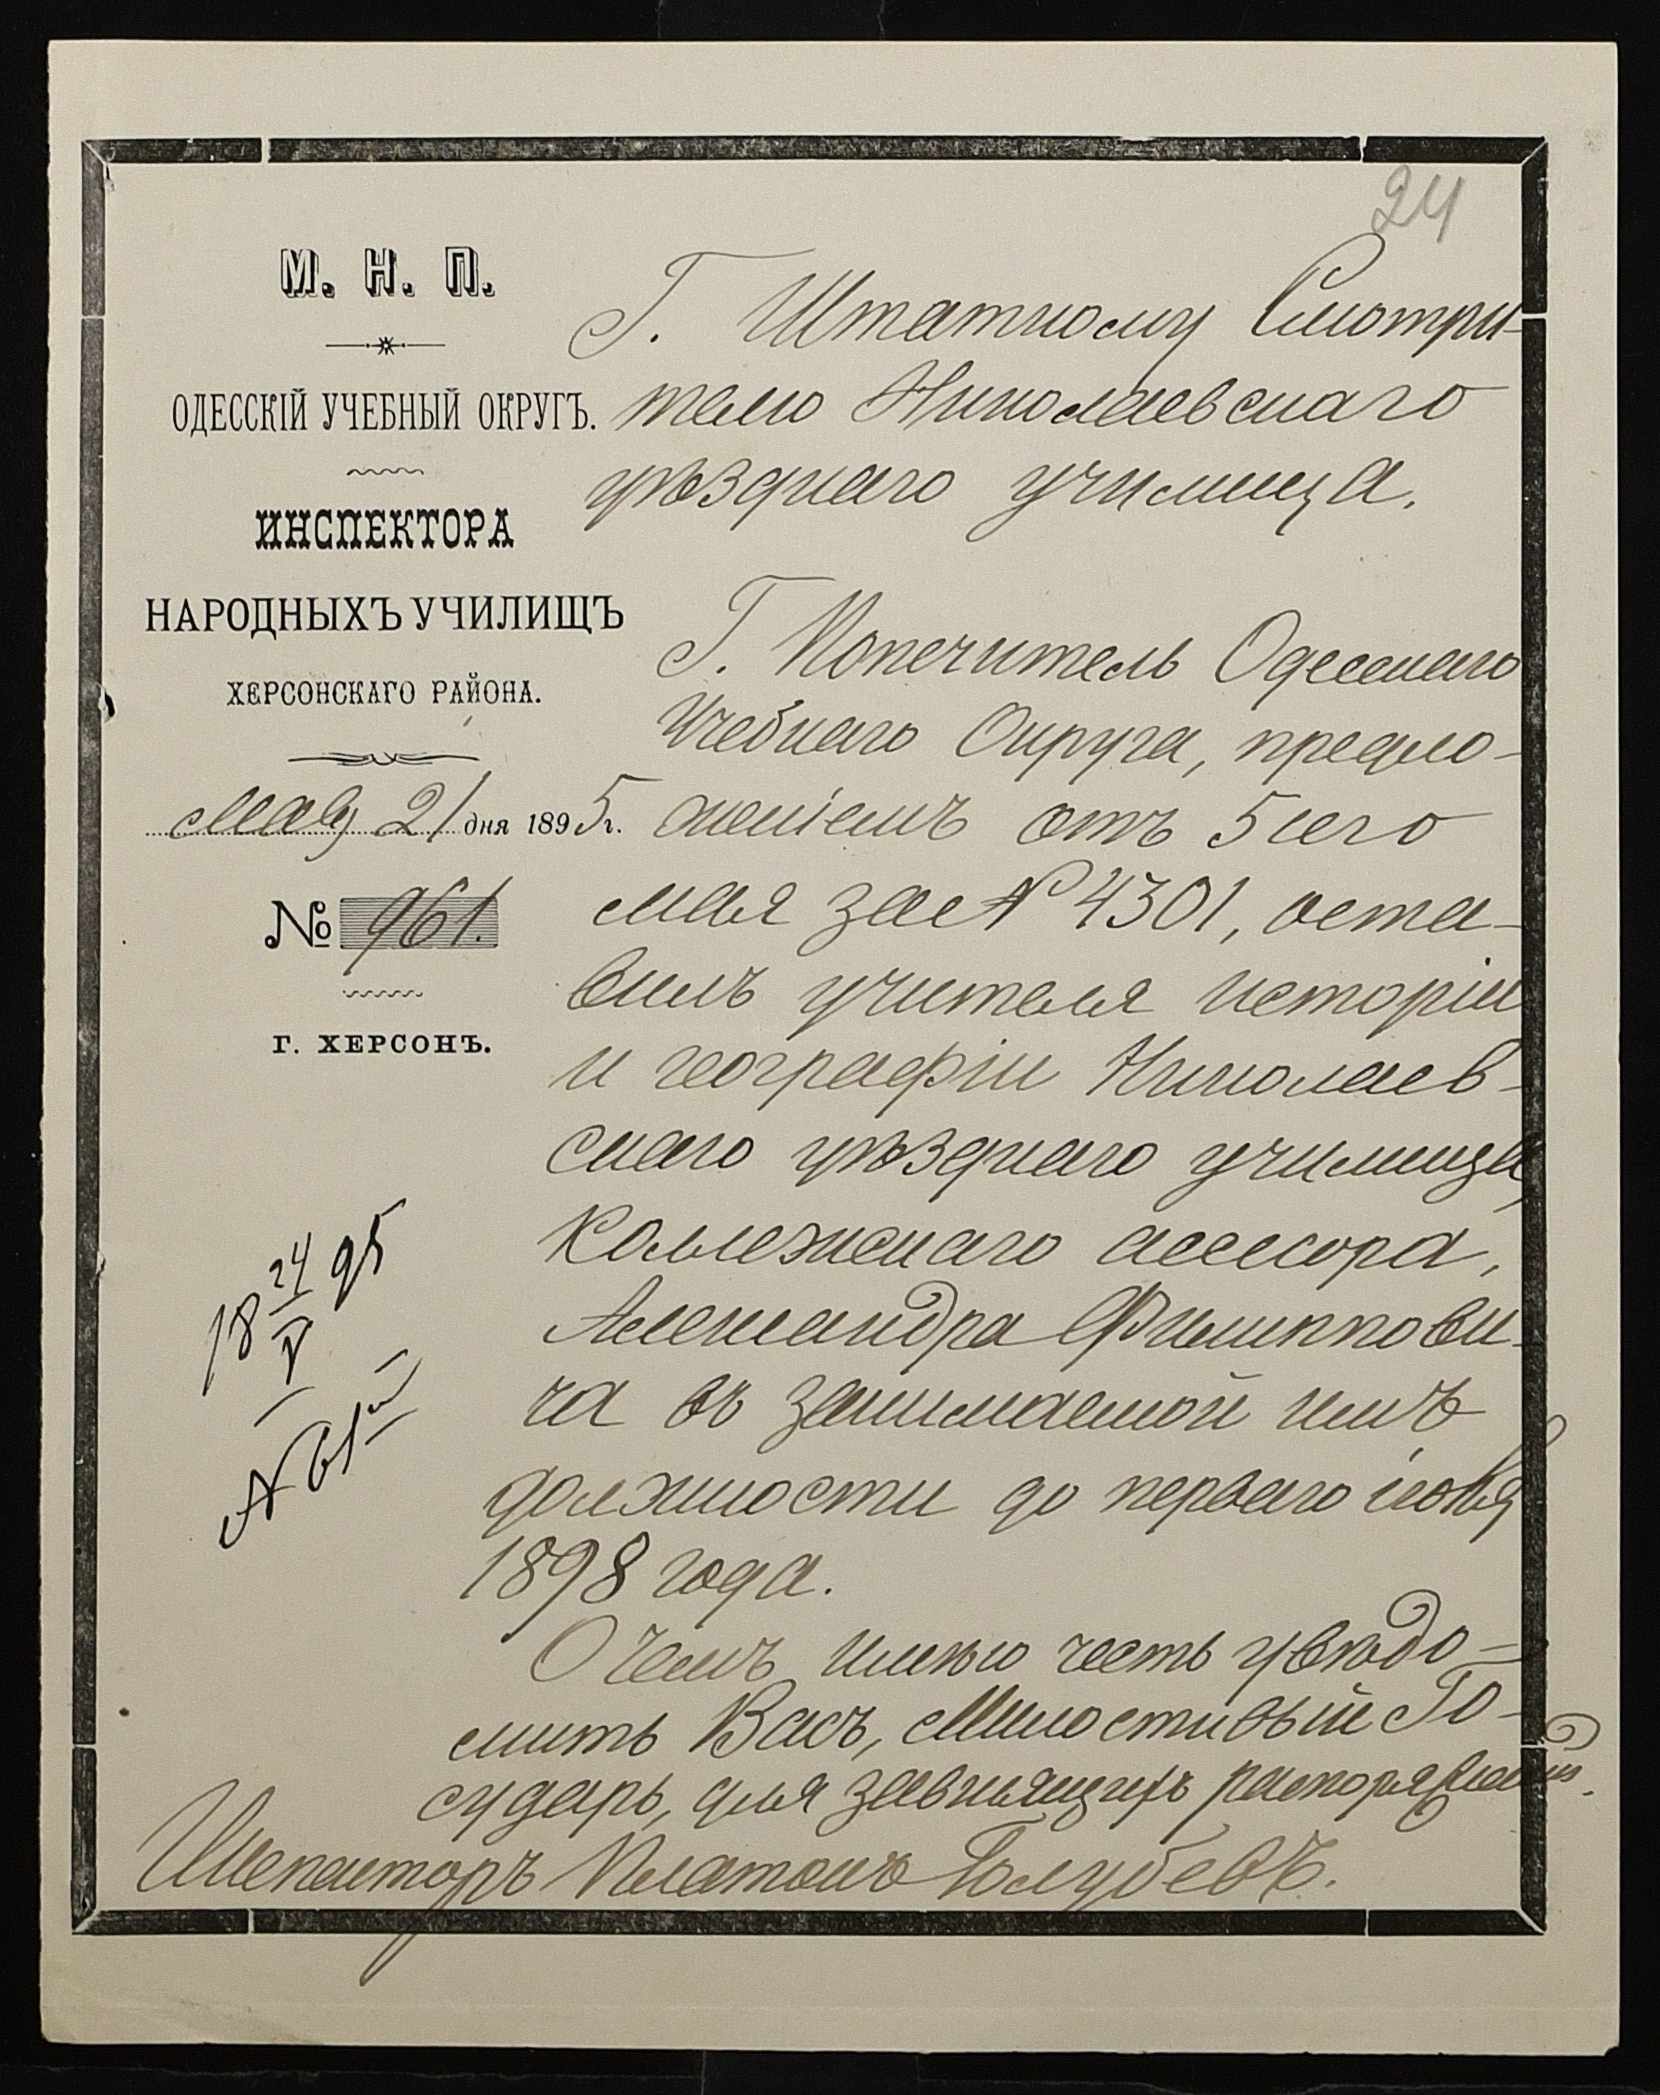 24
М. Н. П.
ОДЕССКІЙ УЧЕБНЫЙ ОКРУГЪ.
ИНСПЕКТОРА
НАРОДНЫХЪ УЧИЛИЩЪ
ХЕРСОНСКАГО РАЙОНА.
Мая 21 дня 1895 г.
№ 961.
Г. ХЕРСОНЪ.
18 24/V 95
№ 61
Г. Штатному Смотри-
телю Николаевскаго
уѣзднаго училища.
Г. Попечитель Одесскаго
Учебнаго Округа, предло-
женіемъ отъ 5 сего
мая за № 4301, оста-
вилъ учителя исторіи
и географіи Николаев-
скаго уѣзднаго училища,
Коллежскаго ассесора,
Александра Филиппови-
ча въ занимаемой имъ
должности до перваго
1898 года.
О чемъ имѣю честь увѣдо-
мить Васъ, Милостивый Го-
сударь, для зависящихъ распоряженій.
Инспекторъ Платонъ Голубевъ.